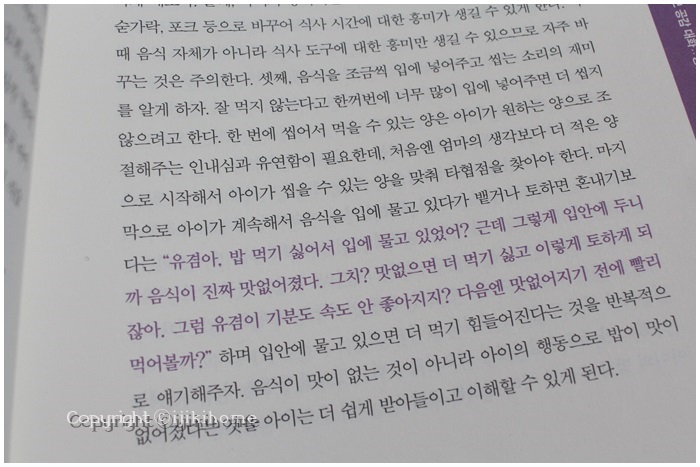 숟가락, 포크 등으로 바꾸어 식사 시간에 대한 흥미가 생길 수 있게 한다.
때 음식 자체가 아니라 식사 도구에 대한 흥미만 생길 수 있으므로 자주 바
꾸는 것은 주의한다. 셋째, 음식을 조금씩 입에 넣어주고 씹는 소리의 재미
를 알게 하자. 잘 먹지 않는다고 한꺼번에 너무 많이 입에 넣어주면 더 씹지
않으려고 한다. 한 번에 씹어서 먹을 수 있는 양은 아이가 원하는 양으로 조
절해주는 인내심과 유연함이 필요한데, 처음엔 엄마의 생각보다 더 적은 양
으로 시작해서 아이가 씹을 수 있는 양을 맞춰 타협점을 찾아야 한다. 마지
막으로 아이가 계속해서 음식을 입에 물고 있다가 뱉거나 토하면 혼내기보
다는 “유겸아, 밥 먹기 싫어서 입에 물고 있었어? 근데 그렇게 입안에 두니
까 음식이 진짜 맛없어졌다. 그치? 맛없으면 더 먹기 싫고 이렇게 토하게 되
잖아. 그럼 유겸이 기분도 속도 안 좋아지지? 다음엔 맛없어지기 전에 빨리
먹어볼까?” 하며 입안에 물고 있으면 더 먹기 힘들어진다는 것을 반복적으
로 얘기해주자. 음식이 맛이 없는 것이 아니라 아이의 행동으로 밥이 맛이
없어졌다는 것을 아이는 더 쉽게 받아들이고 이해할 수 있게 된다.
공감 대화
Copyright ©ijikihome